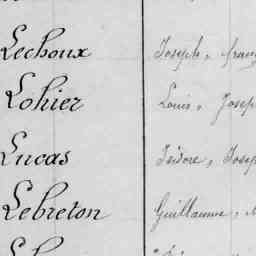 Lechoux Joseph, franç
Lohier Louis, Josep
Lucas Isidore, Josep
Lebreton Guillaume,